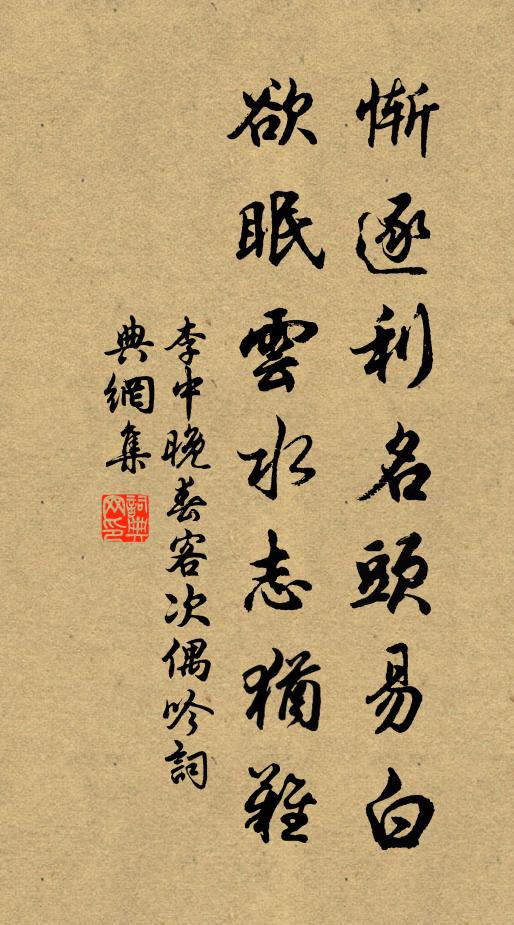 慚逐利名頭易白
欲眠雲水志猶難
李中晚春客次偶吟詞
典網集
詞典
网印